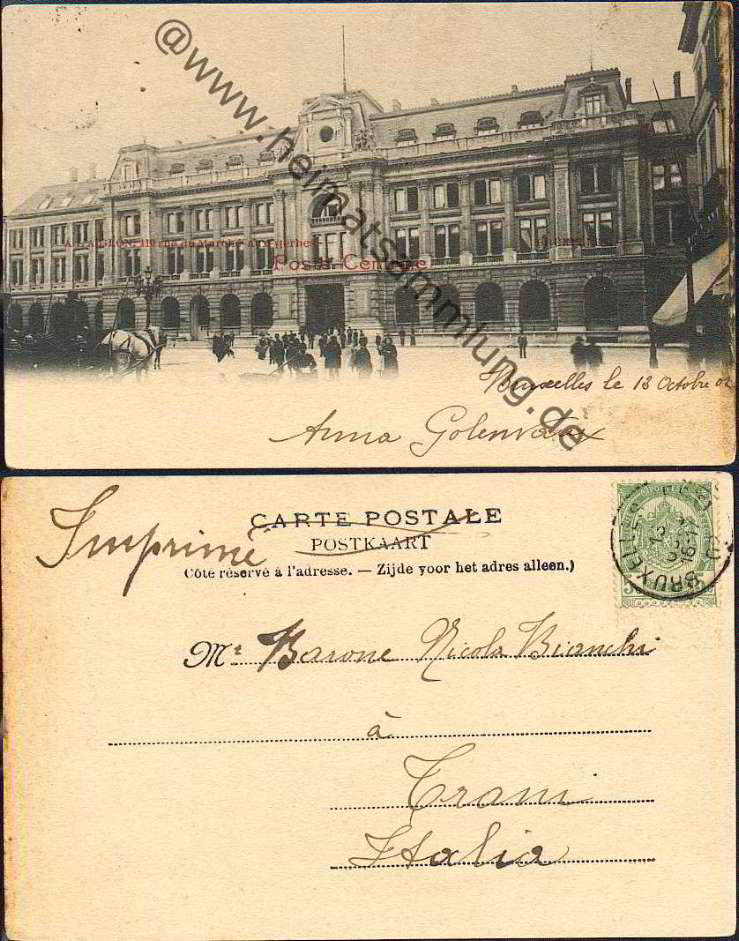 @www.heimatsammlung.de
Postes Centrales
Bruxelles le 13 Octobre 02
Anna Golenvaux
Imprimé
CARTE POSTALE
POSTKAART
Côté réservé à l'adresse. — Zijde voor het adres alleen.)
Mr Barone Nicola Bianchi
à
Trani
Italia
BRUXELLES